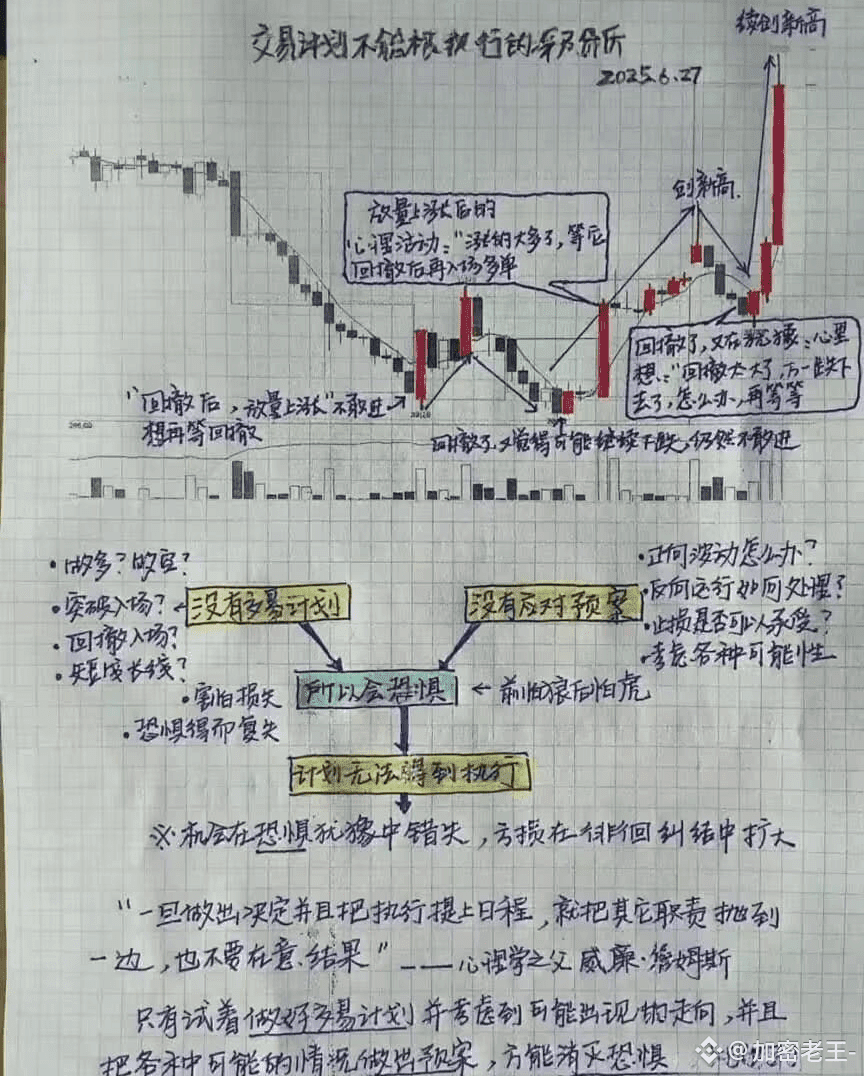 续创新高
交易计划不能很执行的原因分析
2025.6.27
创新高.
放量上涨后的
心理活动:"涨的太多了,等它
回撤后再入场多单
回撤了,又在犹豫:心里
想:"回撤太大了,万一跌下
去了,怎么办,再等等
"回撤后,放量上涨"不敢进
想再等回撤
回撤了,又觉得可能继续下跌,仍然不敢进
·做多?做空?
·突破入场?
·回撤入场?
·短线长线?
没有交易计划
没有应对预案
·正向波动怎么办?
·反向运行如何处理?
·止损是否可以承受?
·考虑各种可能性
·害怕损失
·恐惧得而复失
所以会恐惧
前怕狼后怕虎
计划无法得到执行
※机会在恐惧犹豫中错失,亏损在徘徊纠结中扩大
"一旦做出决定并且把执行提上日程,就把其它职责抛到
一边,也不要在意结果"——心理学之父 威廉·詹姆斯
只有试着做好交易计划并考虑到可能出现的走向,并且
把各种可能的情况做出预案,方能消灭恐惧
@加密老王-